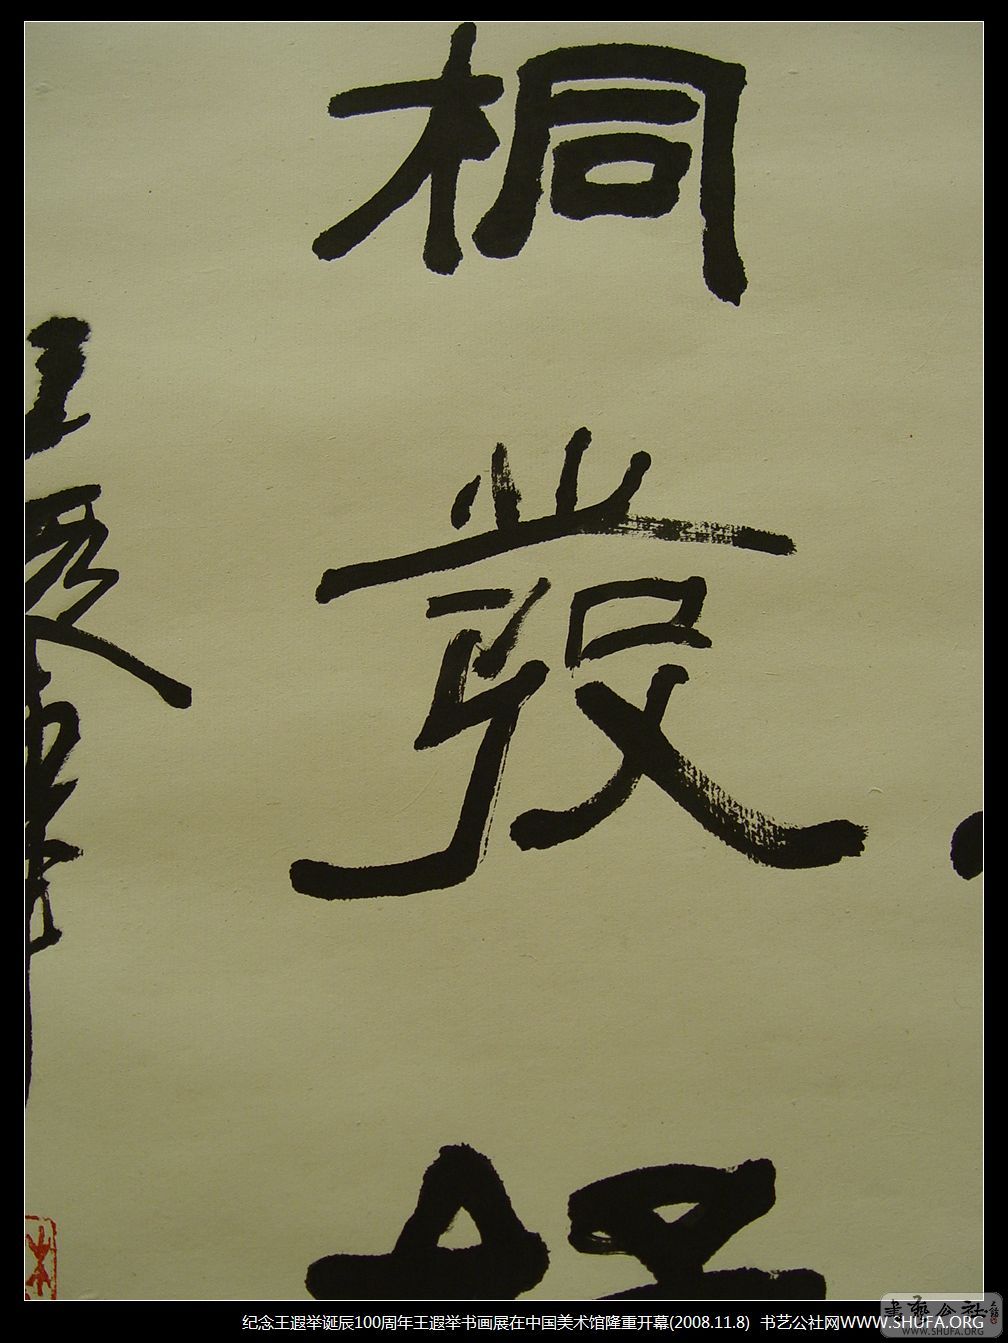 桐
發
好
王遐舉
纪念王遐举诞辰100周年王遐举书画展在中国美术馆隆重开幕(2008.11.8) 书艺公社网WWW.SHUFA.ORG
書艺公社
www.SHUFA.ORG